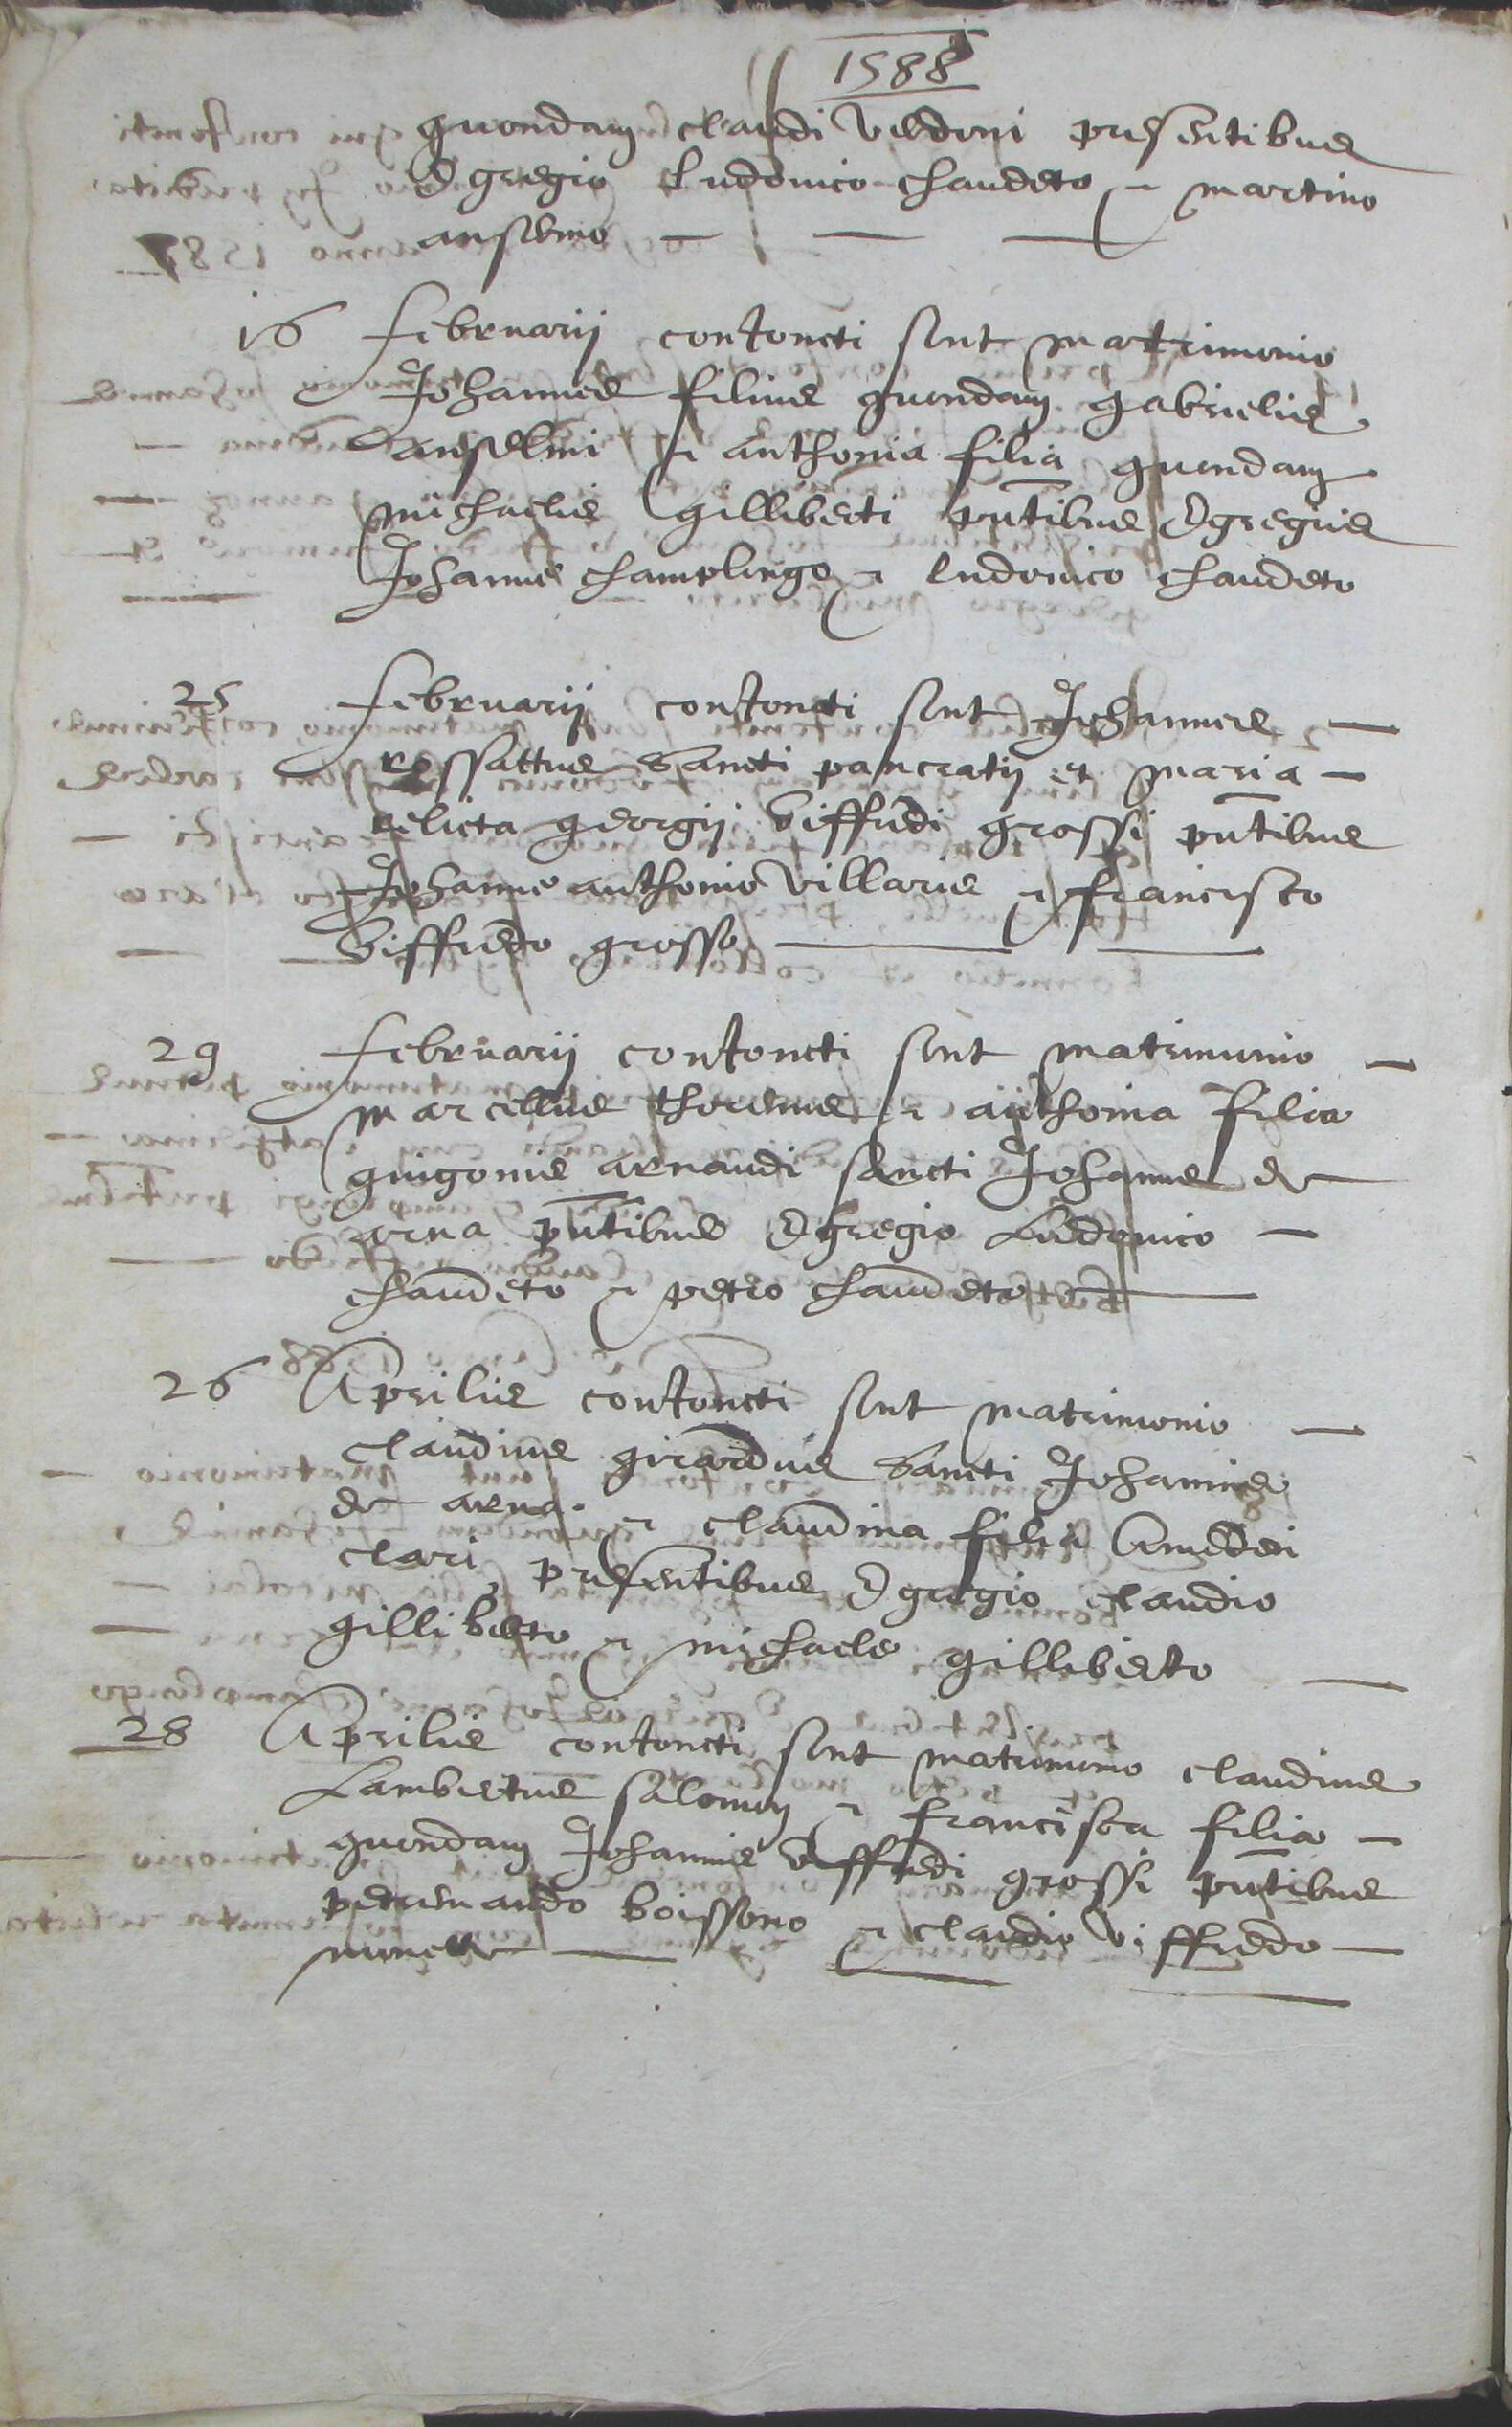 1588
quondam claudi verdoni presentibus
Egregio Ludovico chaudeto et martino
anselmo
16 februarij conjoncti sunt matrimonio
Johannes filius quondam gabrielis
anselmi et anthonia filia quondam
michaelis gilliberti pntibus Egregiis
Johanne champlingo et ludovico chaudeto
25 februarij conjoncti sunt Johannes
rossattus Sancti pancratij et maria
relicta georgij Viffredi grossi pntibus
Johanne anthonio Villaris et francisco
Viffredo grosso
29 februarij conjoncti sunt matrimonio
marcellus et anthonia filia
guigonis arnaudi sancti Johannis de
arna pntibus Egregio Ludovico
chaudeto et petro chaudeto
26 Aprilis conjoncti sunt matrimonio
claudius girardus Sancti Johannis
de arna et claudina filia Amedei
clari presentibus Egregio claudio
gilliberto et michaele gilliberto
28 Aprilis conjoncti sunt matrimonio claudius
Lambertus et francisca filia
quondam Johannis Viffredi grossi pntibus
petremando boissono et claudio viffredo